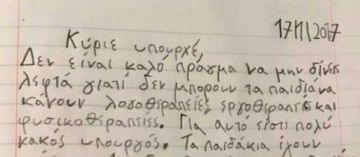 17/1/2017
Κύριε υπουρχέ,
Δεν είναι καλό πράγμα να μην δίνεις
λεφτά γιατί δεν μπορουν τα παιδιάνα
κάνουν λοσοθεραπείες, εργοθεραπείες και
φυσικοθεραπείες. Για αυτό είστι πολύ
κακός υπουργός. Τα παιδάκια έχουν